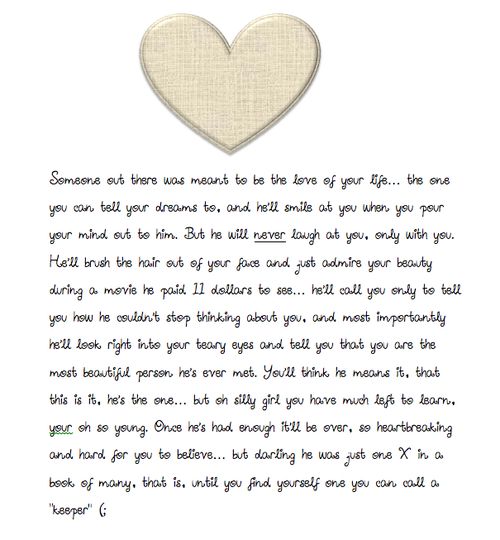 Someone out there was meant to be the love of your life... the one
you can tell your dreams to, and he'll smile at you when you pour
your mind out to him. But he will never laugh at you, only with you.
He'll brush the hair out of your face and just admire your beauty
during a movie he paid 11 dollars to see... he'll call you only to tell
you how he couldn't stop thinking about you, and most importantly
he'll look right into your teary eyes and tell you that you are the
most beautiful person he's ever met. You'll think he means it, that
this is it, he's the one... but oh silly girl you have much left to learn,
your oh so young. Once he's had enough it'll be over, so heartbreaking
and hard for you to believe... but darling he was just one X in a
book of many, that is, until you find yourself one you can call a
"keeper" (;